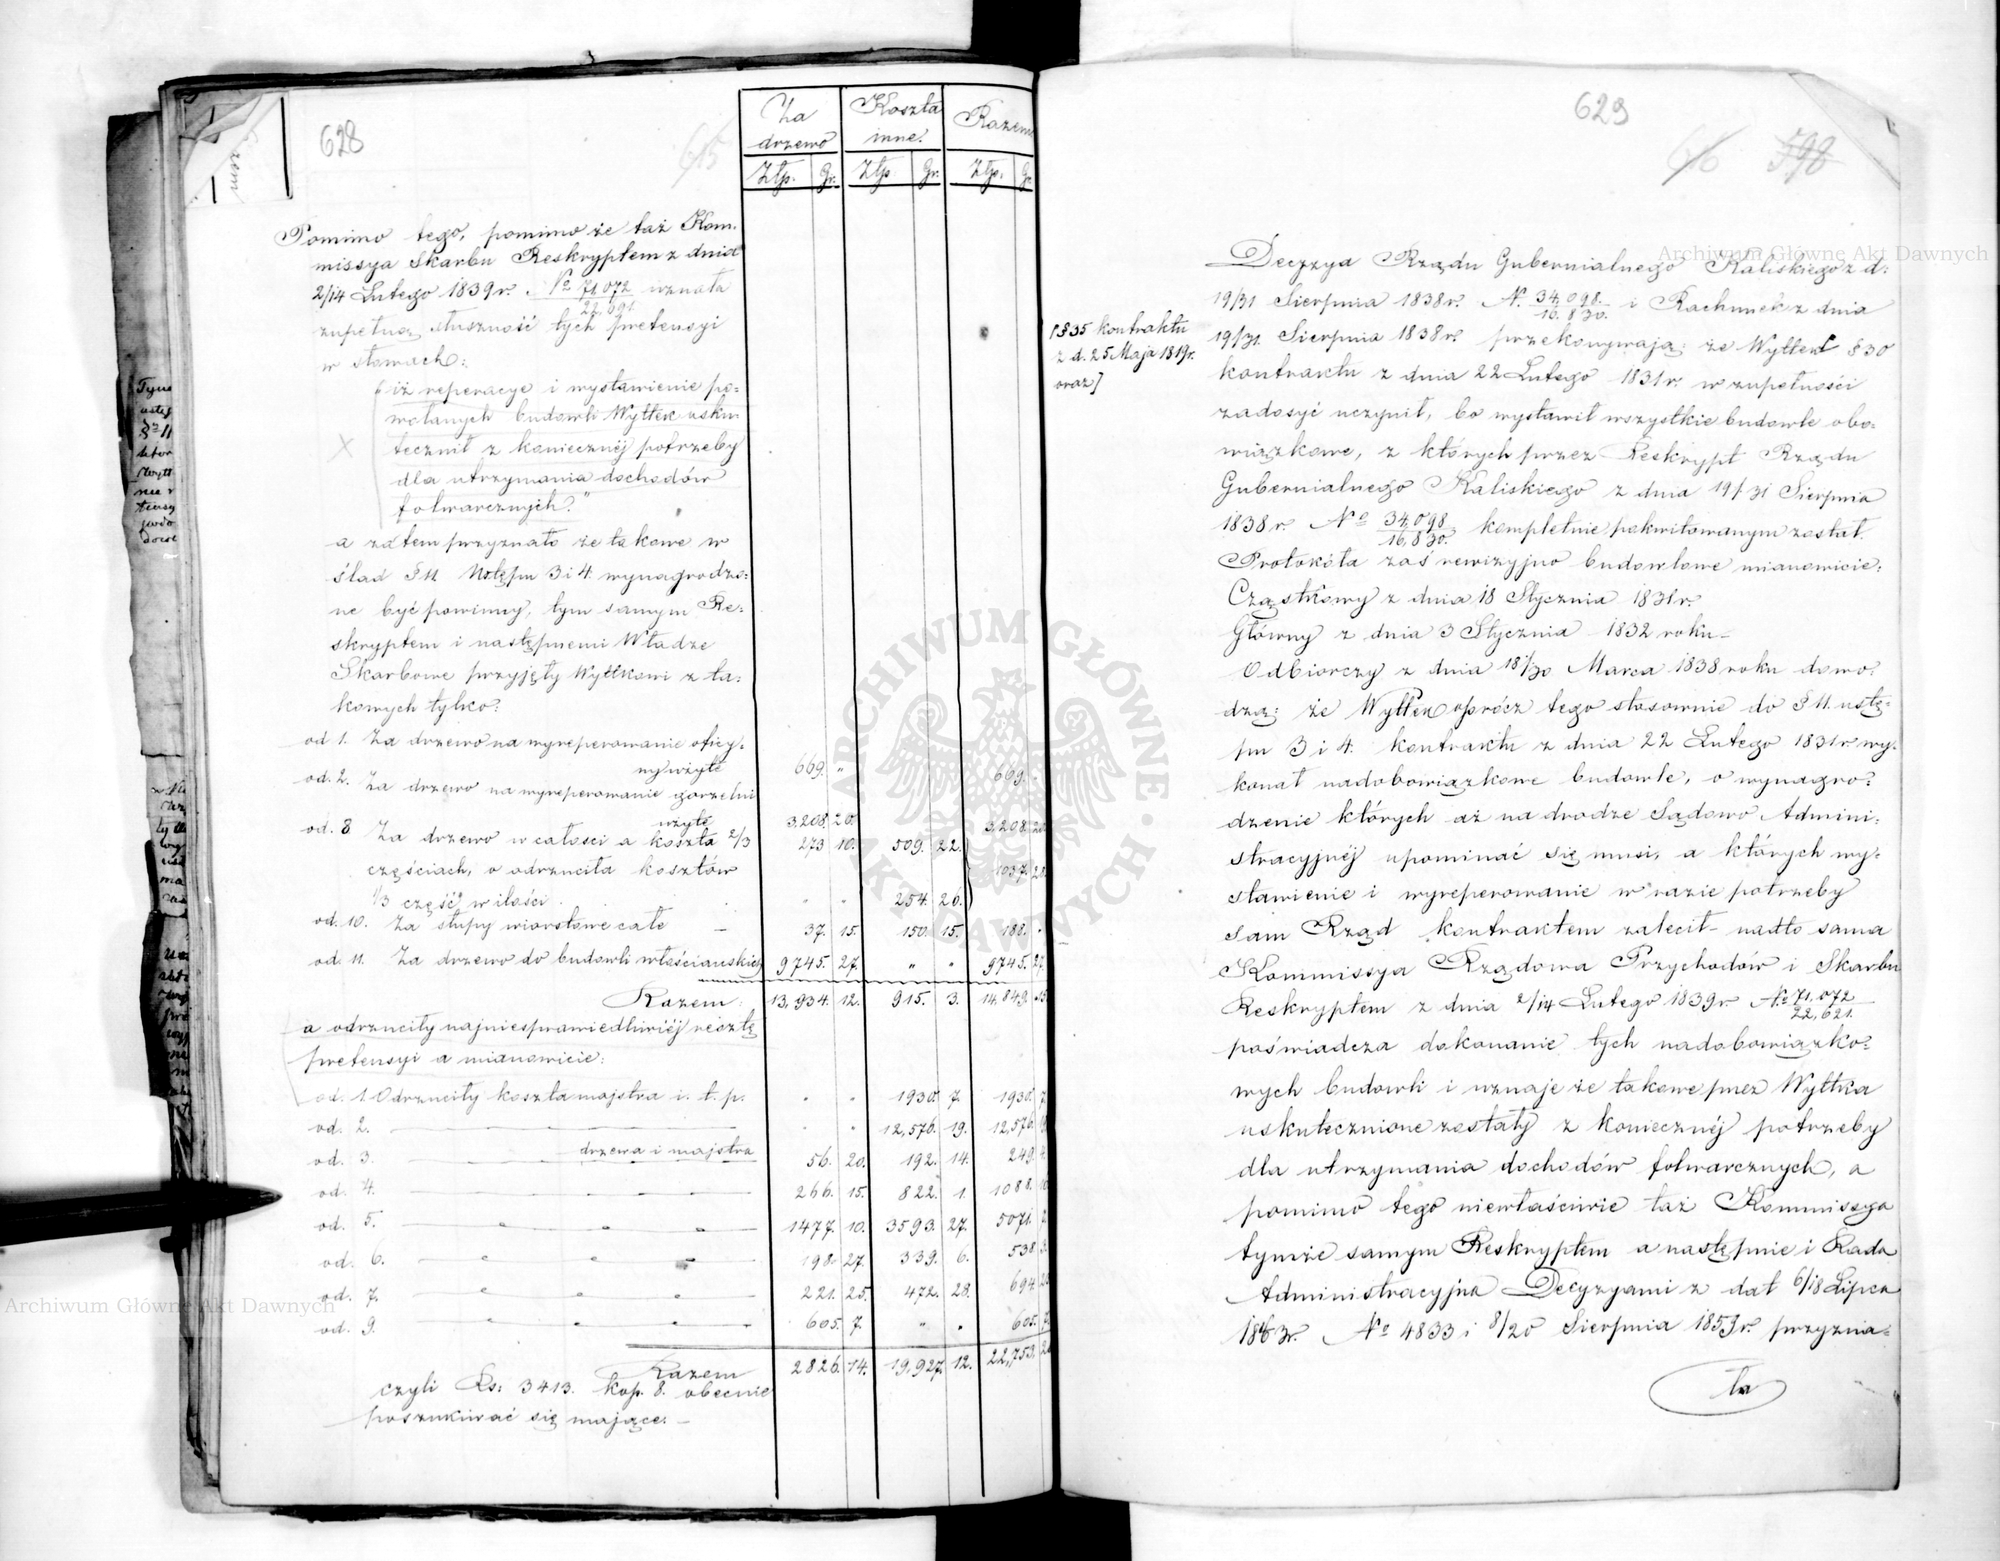 628
615
Za drzewo
Koszta inne.
Razem
Złp. Gr. Złp Gr. Złp. Gr.
Pomimo tego, pomimo że taż Kom-
missya Skarbu Reskryptem z dnia
2/14 Lutego 1839 r. No 71,072/22,621 uznała
zupełną słuszność tych pretensyi
w słowach:
"iż reperacye i wystawienie po-
wołanych budowli Wyttek usku
tecznił z koniecznéj potrzeby
dla utrzymania dochodów
folwarcznych."
a zatem przyznało że takowe w
ślad § 11. Ustępu 3 i 4. wynagrodzo-
ne być powinny, tym samym Re-
skryptem i następnemi Władze
Skarbowe przyjęły Wyttkowi z ta-
kowych tylko:
od 1. Za drzewo na wyreperowanie oficy-
ny użyte 669. " 669. -
od. 2. Za drzewo na wyreperowanie gorzelni
użyte 3,208. 20. 3,208. 20
od. 8 Za drzewo w całości a koszta 2/3 273 10. 509. 22.
częściach, o odrzuciła kosztów 1037. 28
1/3 część w ilości . . . 254. 26.
od. 10. Za słupy wiorstowe całe — 37. 15. 150. 15. 188. .
od. 11. Za drzewo do budowli włościańskiej 9745. 27. " . 9745. 27.
Razem: 13,934. 12. 915. 3. 14,849. 15
a odrzuciły najniesprawiedliwiéj resztę
pretensyi a mianowicie:
od. 1. Odrzuciły koszta majstra i. t. p. . . 1930. 7. 1930. 7
od. 2. — — . . 12,576. 19. 12,576. 19
od. 3. — drzewa i majstra 56. 20. 192. 14. 249. 4
od. 4. — — 266. 15. 822. 1. 1088. 16
od. 5. — — 1477. 10. 3593. 27. 5071. 7
od. 6. — — 198. 27. 339. 6. 538 3
od. 7. — — 221. 25. 472. 28. 694 23
od. 9. — — 605. 7. " . 605. 7.
Razem 2826. 14. 19,927. 12. 22,753. 26
czyli Rs: 3413. kop. 8. obecnie
poszukiwać się mające. —
629
616 598
Decyzya Rządu Gubernialnego Kaliskiego z d:
19/31 Sierpnia 1838 r. N. 34,098./16,830. i Rachunek z dnia
[§ 35 kontraktu
z d. 25 Maja 1819 r.
oraz]
19/31. Sierpnia 1838 r. przekonywają: że Wyttek § 30
kontraktu z dnia 22 Lutego 1831 r. w zupełności
zadosyć uczynił, bo wystawił wszystkie budowle obo-
wiązkowe, z których przez Reskrypt Rządu
Gubernialnego Kaliskiego z dnia 19/31 Sierpnia
1838 r. No 34,098/16,830. kompletnie pokwitowanym został.
Protokóła zaś rewizyjno budowlowe mianowicie:
Cząstkowy z dnia 18 Stycznia 1831 r.
Główny z dnia 3 Stycznia 1832 roku —
Odbiorczy z dnia 18/30 Marca 1838 roku dowo-
dzą: że Wyttek oprócz tego stosownie do § 11. ustę-
pu 3 i 4. kontraktu z dnia 22 Lutego 1831 r. wy-
konał nadobowiązkowe budowle, o wynagro-
dzenie których aż na drodze Sądowo Admini-
stracyjnéj upominać się musi, a których wy-
stawienie i wyreperowanie w razie potrzeby
sam Rząd kontraktem zalecił - nadto sama
Kommissya Rządowa Przychodów i Skarbu
Reskryptem z dnia 2/14 Lutego 1839 r. No 71,072/22,621.
poświadcza dokonanie tych nadobowiązko-
wych budowli i uznaje że takowe przez Wyttka
uskutecznione zostały z koniecznéj potrzeby
dla utrzymania dochodów folwarcznych, a
pomimo tego niewłaściwie taż Kommissya
tymże samym Reskryptem a następnie i Rada
Administracyjna Decyzyami z dat 6/18 Lipca
1843 r. No 4833 i 8/20 Sierpnia 1853 r. przyzna-
ła
ARCHIWUM GŁÓWNE AKT DAWNYCH
Archiwum Główne Akt Dawnych
Archiwum Główne Akt Dawnych